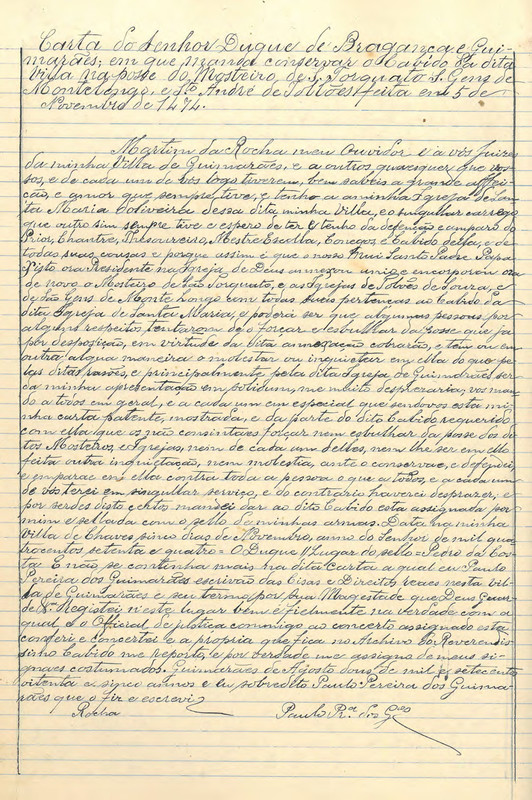 Carta do Senhor Duque de Bragança e Gui-
marães; em que manda conservar o Cabido da dita
Villa na posse do Mosteiro, de S. Torquato S. Gens de
Montelongo, e Sto André de Tollões feita em 5 de
Novembro de 1474.
Martim da Rocha meu Ouvidor e a vós Juizes
da minha Villa de Guimarães, e a outros quaesquer que vos-
sos, e de cada um de vós logo tiverem, bem sabeis a grande affei-
ção, e amor que sempre tive, e tenho a aminha Igreja de San-
ta Maria Coliveira dessa dita minha Villa, e o singular carrego
que outro sim sempre tive e espero de ter e tenho da defenção e amparo do
Prior, Chantre, Thesoureiro, Mestre Escolla, Conegos, e Cabido della, e de
todas suas cousas e porque assim é que o nosso mui Santo Padre Papa
Xisto ora Presidente na Igreja de Deus annexou unio, e encorporou ora
de novo o Mosteiro de São Torquato, e as Igrejas de Tolões de Souza, e
de São Gens de Monte longo com todas suas pertenças ao Cabido da
dita Igreja de Santa Maria, e poderá ser que algumas pessoas por
alguns respeitos, tentarom de o forçar e esbulhar da posse que ja
por desposição, em virtude da dita annexação cobrarão, e tem ou em
outra alguma maneira o molestar ou inquietar em ella do que pe-
las ditas rasões, e principalmente pela dita Igreja de Guimarães ser
da minha apresentação em solidum, me muito desprazaria, vos man-
do a todos em geral, e a cada um em especial que sendovos esta mi-
nha carta patente, mostrada, e da parte do dito Cabido requerido
com ella, que os não consintaes forçar nem esbulhar da posse dos di-
tos Mosteiro, e Igrejas, nem de cada um delles, nem lhe ser em ello
feita outra inquietação, nem molestia, ante o conservae, e defendei,
e emparae em ella contra toda a pessoa o que a todos, e a cada um
de vós terei em singullar serviço, e do contrario haverei desprazer, e
por serdes disto certos, mandei dar ao dito Cabido esta assignada por
mim e sellada com o sello de minhas armas. Data na minha
Villa de Chaves sinco dias de Novembro, anno do Senhor de mil qua-
trocentos setenta e quatro = O Duque // Lugar do sello = Pedro da Cos-
ta. E não se continha mais na dita Carta a qual eu Paulo
Pereira dos Guimarães escrivão das Cisas e Direitos reaes nesta vil-
la de Guimarães e seu termo por Sua Magestade que Deus Guar-
de Sr Registei n'este lugar bem e fielmente na verdade com a
qual e o Official de justiça commigo ao concerto assignado esta
conferi e concertei e a propria que fica no Archivo do Reverendis-
simo Cabido me reporto, e por verdade me assigno de meus si-
gnaes costumados. Guimarães de Agosto dous de mil e setecentos
oitenta e sinco annos e Eu sobredito Paulo Pereira dos Guima-
rães que o fiz e escrevi
Rocha Paulo Ra dos Ges